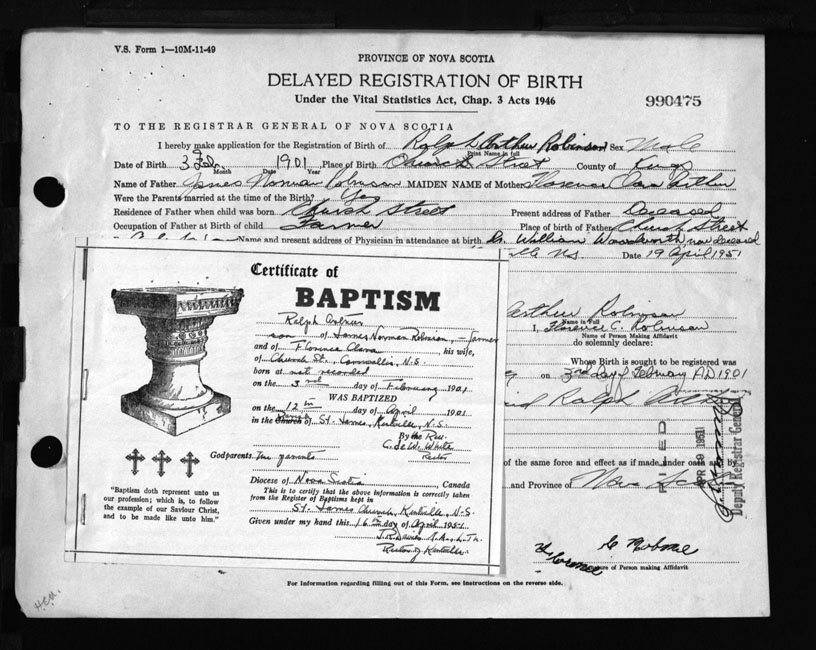 V.S. Form 1—10M-11-49
PROVINCE OF NOVA SCOTIA
DELAYED REGISTRATION OF BIRTH
Under the Vital Statistics Act, Chap. 3 Acts 1946
990475
TO THE REGISTRAR GENERAL OF NOVA SCOTIA
I hereby make application for the Registration of Birth of Ralph Arthur Robinson Sex Male
Print Name in full
Date of Birth 3 Feb. 1901 Place of Birth Church Street County of Kings
Month Date Year
Name of Father James Norman Robinson MAIDEN NAME of Mother Florence Clara
Were the Parents married at the time of the Birth? Yes
Residence of Father when child was born Church Street Present address of Father Deceased
Occupation of Father at Birth of child Farmer Place of birth of Father Church Street
Name and present address of Physician in attendance at birth Dr. William Woodworth, now deceased
N.S. Date 19 April 1951
Certificate of
BAPTISM
Ralph Arthur
son of James Norman Robinson, farmer
and of Florence Clara his wife,
of Church St., Cornwallis, N.S.
born at not recorded
on the 3rd day of February 1901
WAS BAPTIZED
on the 12th day of April 1901
in the Parish Church of St. James, Kentville, N.S.
By the Rev.
Rector
Godparents The parents
Diocese of Nova Scotia, Canada
This is to certify that the above information is correctly taken
from the Register of Baptisms kept in
St. James Church, Kentville, N.S.
Given under my hand this 16th day of April 1951
Rector of Kentville.
"Baptism doth represent unto us
our profession; which is, to follow
the example of our Saviour Christ,
and to be made like unto him."
Arthur Robinson
Name in Full
I, Florence C. Robinson
Name of Person Making Affidavit
do solemnly declare:
Whose Birth is sought to be registered was
on 3rd day of February A.D. 1901
Ralph
of the same force and effect as if made under oath
and Province of Nova
FILED
APR 19 1951
Deputy Registrar General
Florence C
Signature of Person making Affidavit
For Information regarding filling out of this Form, see Instructions on the reverse side.